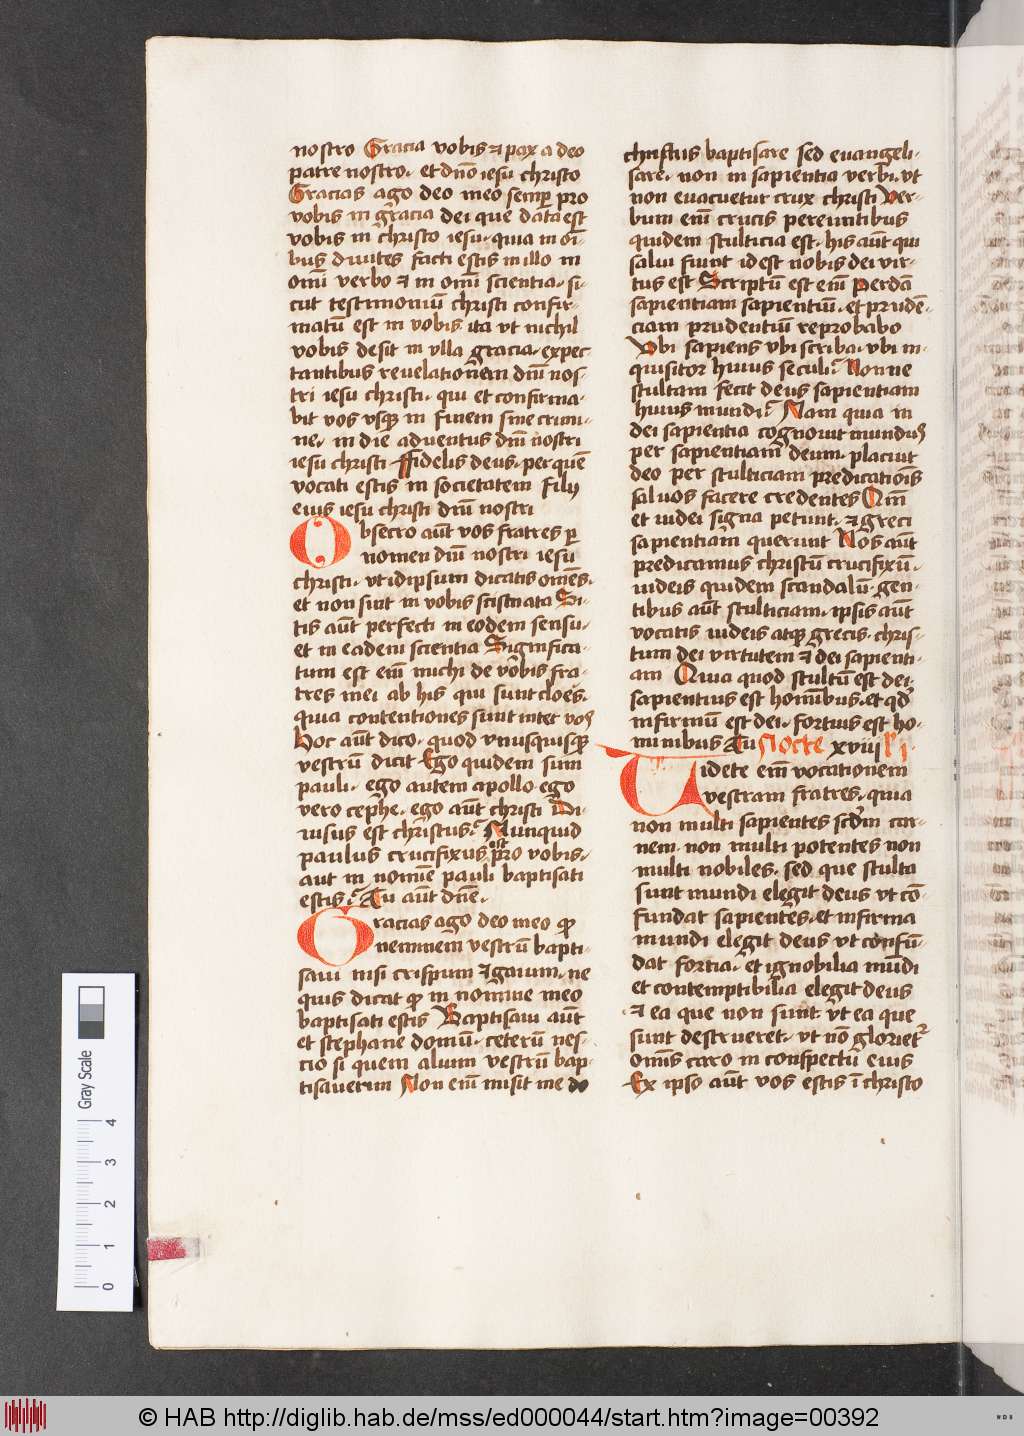 nostro Gracia vobis ⁊ pax a deo
patre nostro · et dn̄o iesu christo
Gracias ago deo meo semꝑ pro
vobis in gracia dei que data est
vobis in christo iesu · quia in oī-
bus diuites facti estis in illo in
omī verbo ⁊ in omī scientia · si-
cut testimoniū christi confir-
matū est in vobis ita vt nichil
vobis desit in vlla gracia · expec
tantibus reuelationem dnī nos-
tri iesu christi · qui et confirma-
bit vos vsqꝫ in finem sine crimi-
ne · in die aduentus dnī nostri
iesu christi Fidelis deus · per quē
vocati estis in societatem filij
eius iesu christi dnī nostri
Obsecro aūt vos fratres ꝑ
nomen dnī nostri iesu
christi · vt idipsum dicatis om̄es ·
et non sint in vobis scismata Si-
tis aūt perfecti in eodem sensu ·
et in eadem scientia Significa-
tum est em̄ michi de vobis fra-
tres mei ab his qui sunt cloes ·
quia contentiones sunt inter vos
Hoc aūt dico · quod vnusquisqꝫ
vestrū dicit Ego quidem sum
pauli · ego autem apollo ego
vero cephe · ego aūt christi Di-
uisus est christus? Nunquid
paulus crucifixus est pro vobis ·
aut in nomīe pauli baptisati
estis? Tu aūt dn̄e ·
Gracias ago deo meo ꝙ
neminem vestrū bapti-
saui nisi crispum ⁊ gaium · ne
quis dicat ꝙ in nomine meo
baptisati estis Baptisaui aūt
et stephane domū · ceterū nes-
cio si quem alium vestrū bap-
tisauerim Non em̄ misit me
christus baptisare sed euangeli-
sare · non in sapientia verbi · vt
non euacuetur crux christi Ver-
bum em̄ crucis pereuntibus
quidem stulticia est · his aūt qui
salui fiunt id est nobis dei vir-
tus est Scriptū est em̄ Perdā
sapientiam sapientiū · et prudē-
ciam prudentiū reprobabo
Vbi sapiens vbi scriba · vbi in-
quisitor huius seculi? Nonne
stultam fecit deus sapientiam
huius mundi? Nam quia in
dei sapientia cognouit mundus
per sapientiam deum · placuit
deo per stulticiam predicatiōis
saluos facere credentes Qm̄
et iudei signa petunt · ⁊ greci
sapientiam querunt Nos aūt
predicamus christū crucifixū ·
iudeis quidem scandalū · gen-
tibus aūt stulticiam · ipsis aūt
vocatis iudeis atqꝫ grecis · chris-
tum dei virtutem ⁊ dei sapienti-
am Quia quod stultū est dei ·
sapientius est homībus · et qd̄
infirmū est dei · fortius est ho-
minibus Tu Nocte xviij
Videte em̄ vocationem
vestram fratres · quia
non multi sapientes scd̄m car-
nem · non multi potentes non
multi nobiles · sed que stulta
sunt mundi elegit deus vt cō-
fundat sapientes · et infirma
mundi elegit deus vt confū-
dat fortia · et ignobilia mūdi
et contemptibilia elegit deus
· ⁊ ea que non sunt · vt ea que
sunt destrueret · vt nō glorietᷣ
om̄is caro in conspectū eius
Ex ipso aūt vos estis ī christo
Gray Scale
0 1 2 3 4
© HAB http://diglib.hab.de/mss/ed000044/start.htm?image=00392